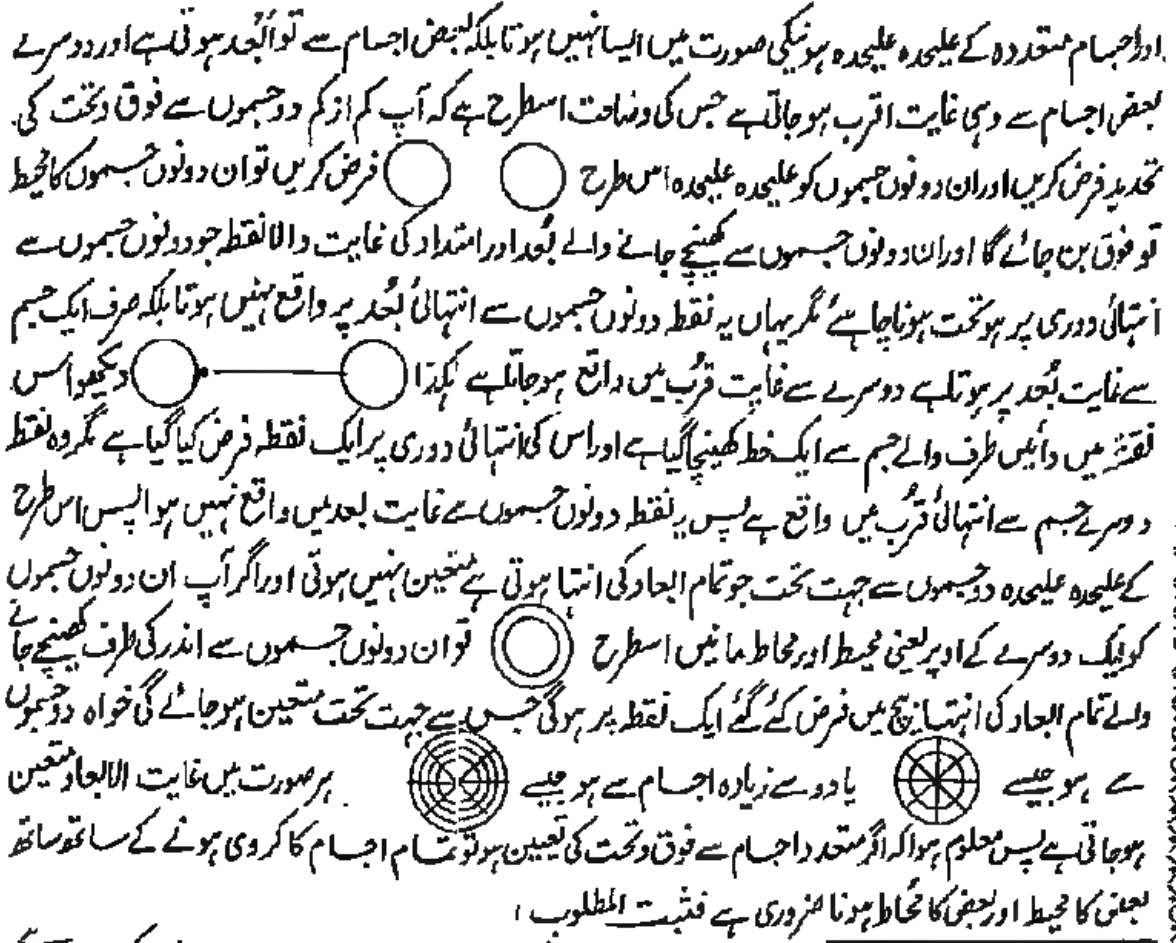 اوراجسام متعددہ کے علیحدہ علیحدہ ہونیکی صورت میں ایسا نہیں ہوتا بلکہ بعض اجسام سے تو ابُعد ہوتی ہے اور دوسرے
بعض اجسام سے وہی غایت اقرب ہوجاتی ہے جس کی وضاحت اسطرح ہے کہ آپ کم از کم دو جسموں سے فوق وتحت کی
تحدید فرض کریں اور ان دونوں جسموں کو علیحدہ علیحدہ اس طرح فرض کریں تو ان دونوں جسموں کا محیط
تو فوق بن جائے گا اور ان دونوں جسموں سے کھینچے جانے والے بُعد اور امتداد کی غایت والا نقطہ جو دونوں جسموں سے
انتہائی دوری پر ہو تحت ہونا چاہئے مگر یہاں یہ نقطہ دونوں جسموں سے انتہائی بُعد پر واقع نہیں ہوتا بلکہ صرف ایک جسم
سے غایت بُعد پر ہوتا ہے دوسرے سے غایت قرُب میں واقع ہوجاتا ہے ہٰکذا دیکھو اس
نقشہ میں دائیں طرف والے جسم سے ایک خط کھینچا گیا ہے اور اس کی انتہائی دوری پر ایک نقطہ فرض کیا گیا ہے مگر وہ نقطہ
دوسرے جسم سے انتہائی قرُب میں واقع ہے پس یہ نقطہ دونوں جسموں سے غایت بعد میں واقع نہیں ہوا پس اس طرح
کے علیحدہ علیحدہ دو جسموں سے جہت تحت جو تمام ابعاد کی انتہا ہوتی ہے متعین نہیں ہوتی اور اگر آپ ان دونوں جسموں
کو ایک دوسرے کے اوپر یعنی محیط اور محاط مانیں اسطرح تو ان دونوں جسموں سے اندر کی طرف کھینچے جانے
والے تمام ابعاد کی انتہا بیچ میں فرض کئے گئے ایک نقطہ پر ہوگی جس سے جہت تحت متعین ہوجائے گی خواہ دو جسموں
سے ہو جیسے یا دو سے زیادہ اجسام سے ہو جیسے ہر صورت میں غایت الابعاد متعین
ہوجاتی ہے پس معلوم ہوا کہ اگر متعدد اجسام سے فوق وتحت کی تعیین ہو تو تمام اجسام کا کروی ہونے کے ساتھ ساتھ
بعض کا محیط اور بعض کا محُاط ہونا ضروری ہے فثبت المطلوب ؛